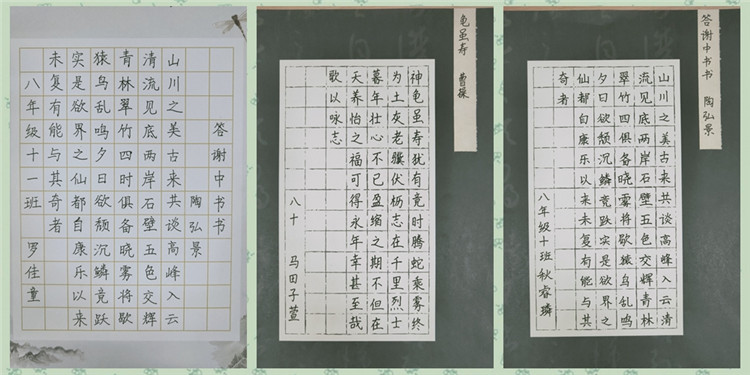 答谢中书书
陶弘景
山川之美古来共谈高峰入云
清流见底两岸石壁五色交辉
青林翠竹四时俱备晓雾将歇
猿鸟乱鸣夕日欲颓沉鳞竞跃
实是欲界之仙都自康乐以来
未复有能与其奇者
八年级十一班 罗佳童
龟虽寿 曹操
神龟虽寿犹有竟时腾蛇乘雾终
为土灰老骥伏枥志在千里烈士
暮年壮心不已盈缩之期不但在
天养怡之福可得永年幸甚至哉
歌以咏志
八十 马田子萱
答谢中书书 陶弘景
山川之美古来共谈高峰入云清
流见底两岸石壁五色交辉青林
翠竹四俱备晓雾将歇猿鸟乱鸣
夕日欲颓沉鳞竞跃实是欲界之
仙都自康乐以来未复有能与其
奇者
八年级十班秋睿璘